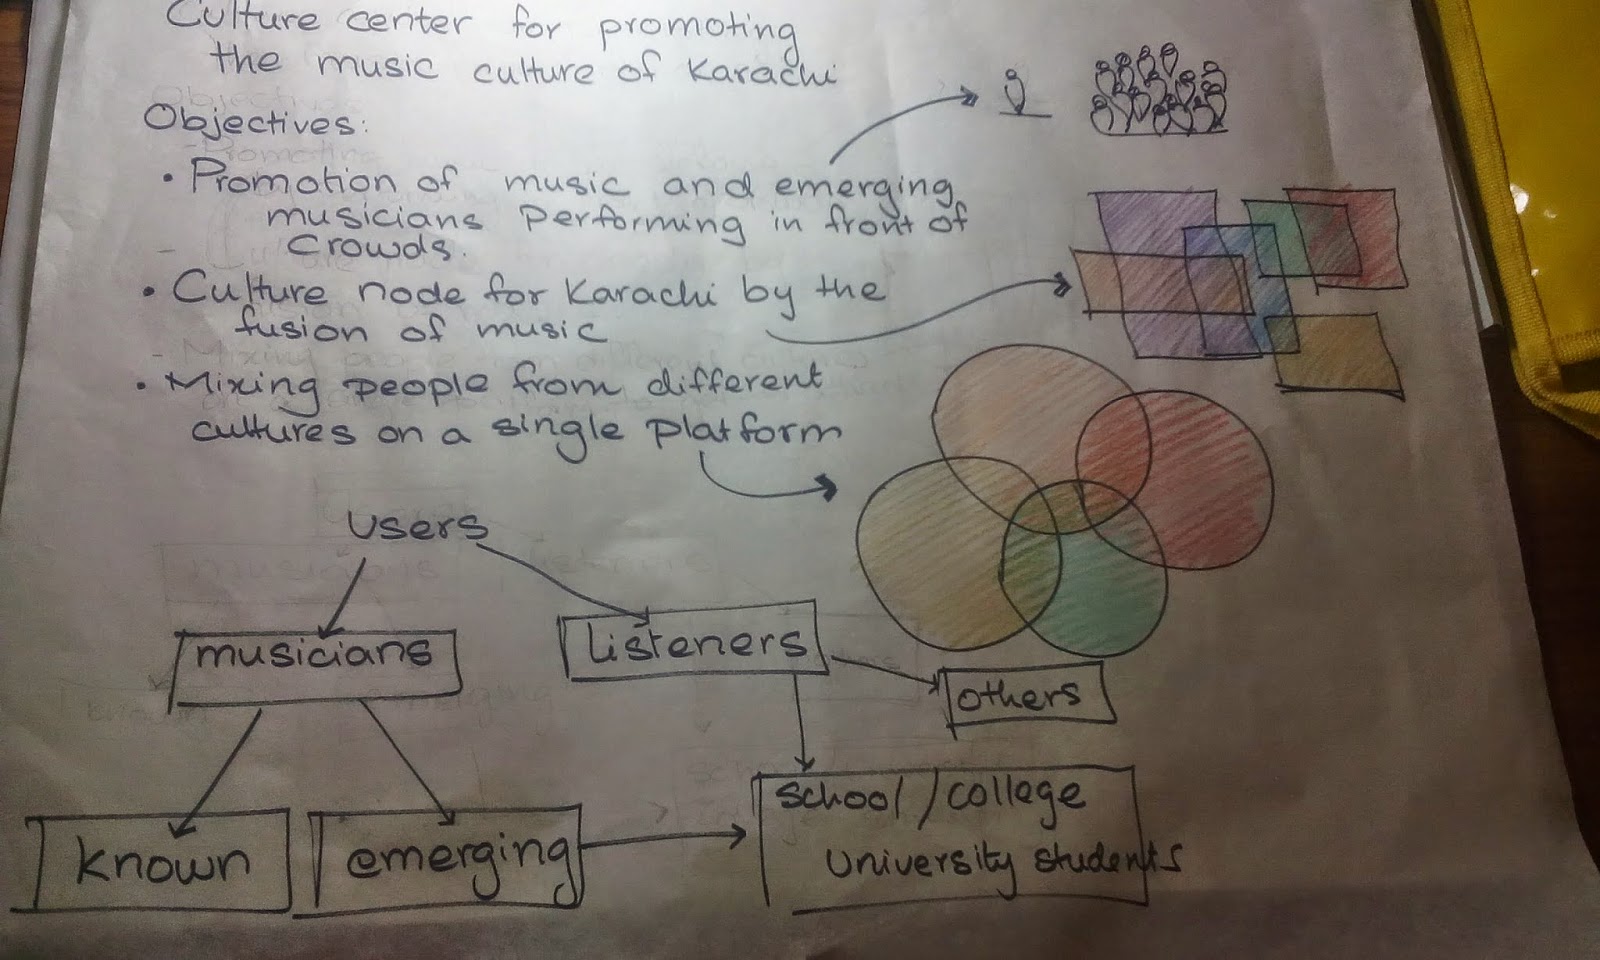 Culture center for promoting
the music culture of Karachi
Objectives:
• Promotion of music and emerging
musicians performing in front of
crowds.
• Culture node for Karachi by the
fusion of music
• Mixing people from different
cultures on a single platform
users
musicians
Listeners
others
known
emerging
school/college
university students